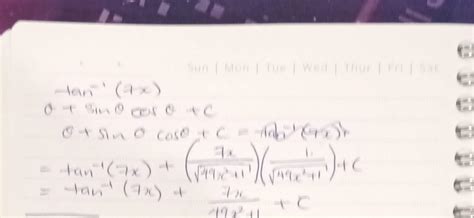 Sun | Mon | Tue | Wed | Thur | Fri | Sat
tan⁻¹(7x)
θ + sinθ cosθ + C
θ + sinθ cosθ + C = tan⁻¹(7x)+
= tan⁻¹(7x) + (7x/√(49x²+1))(1/√(49x²+1)) + C
= tan⁻¹(7x) + 7x/(49x²+1) + C